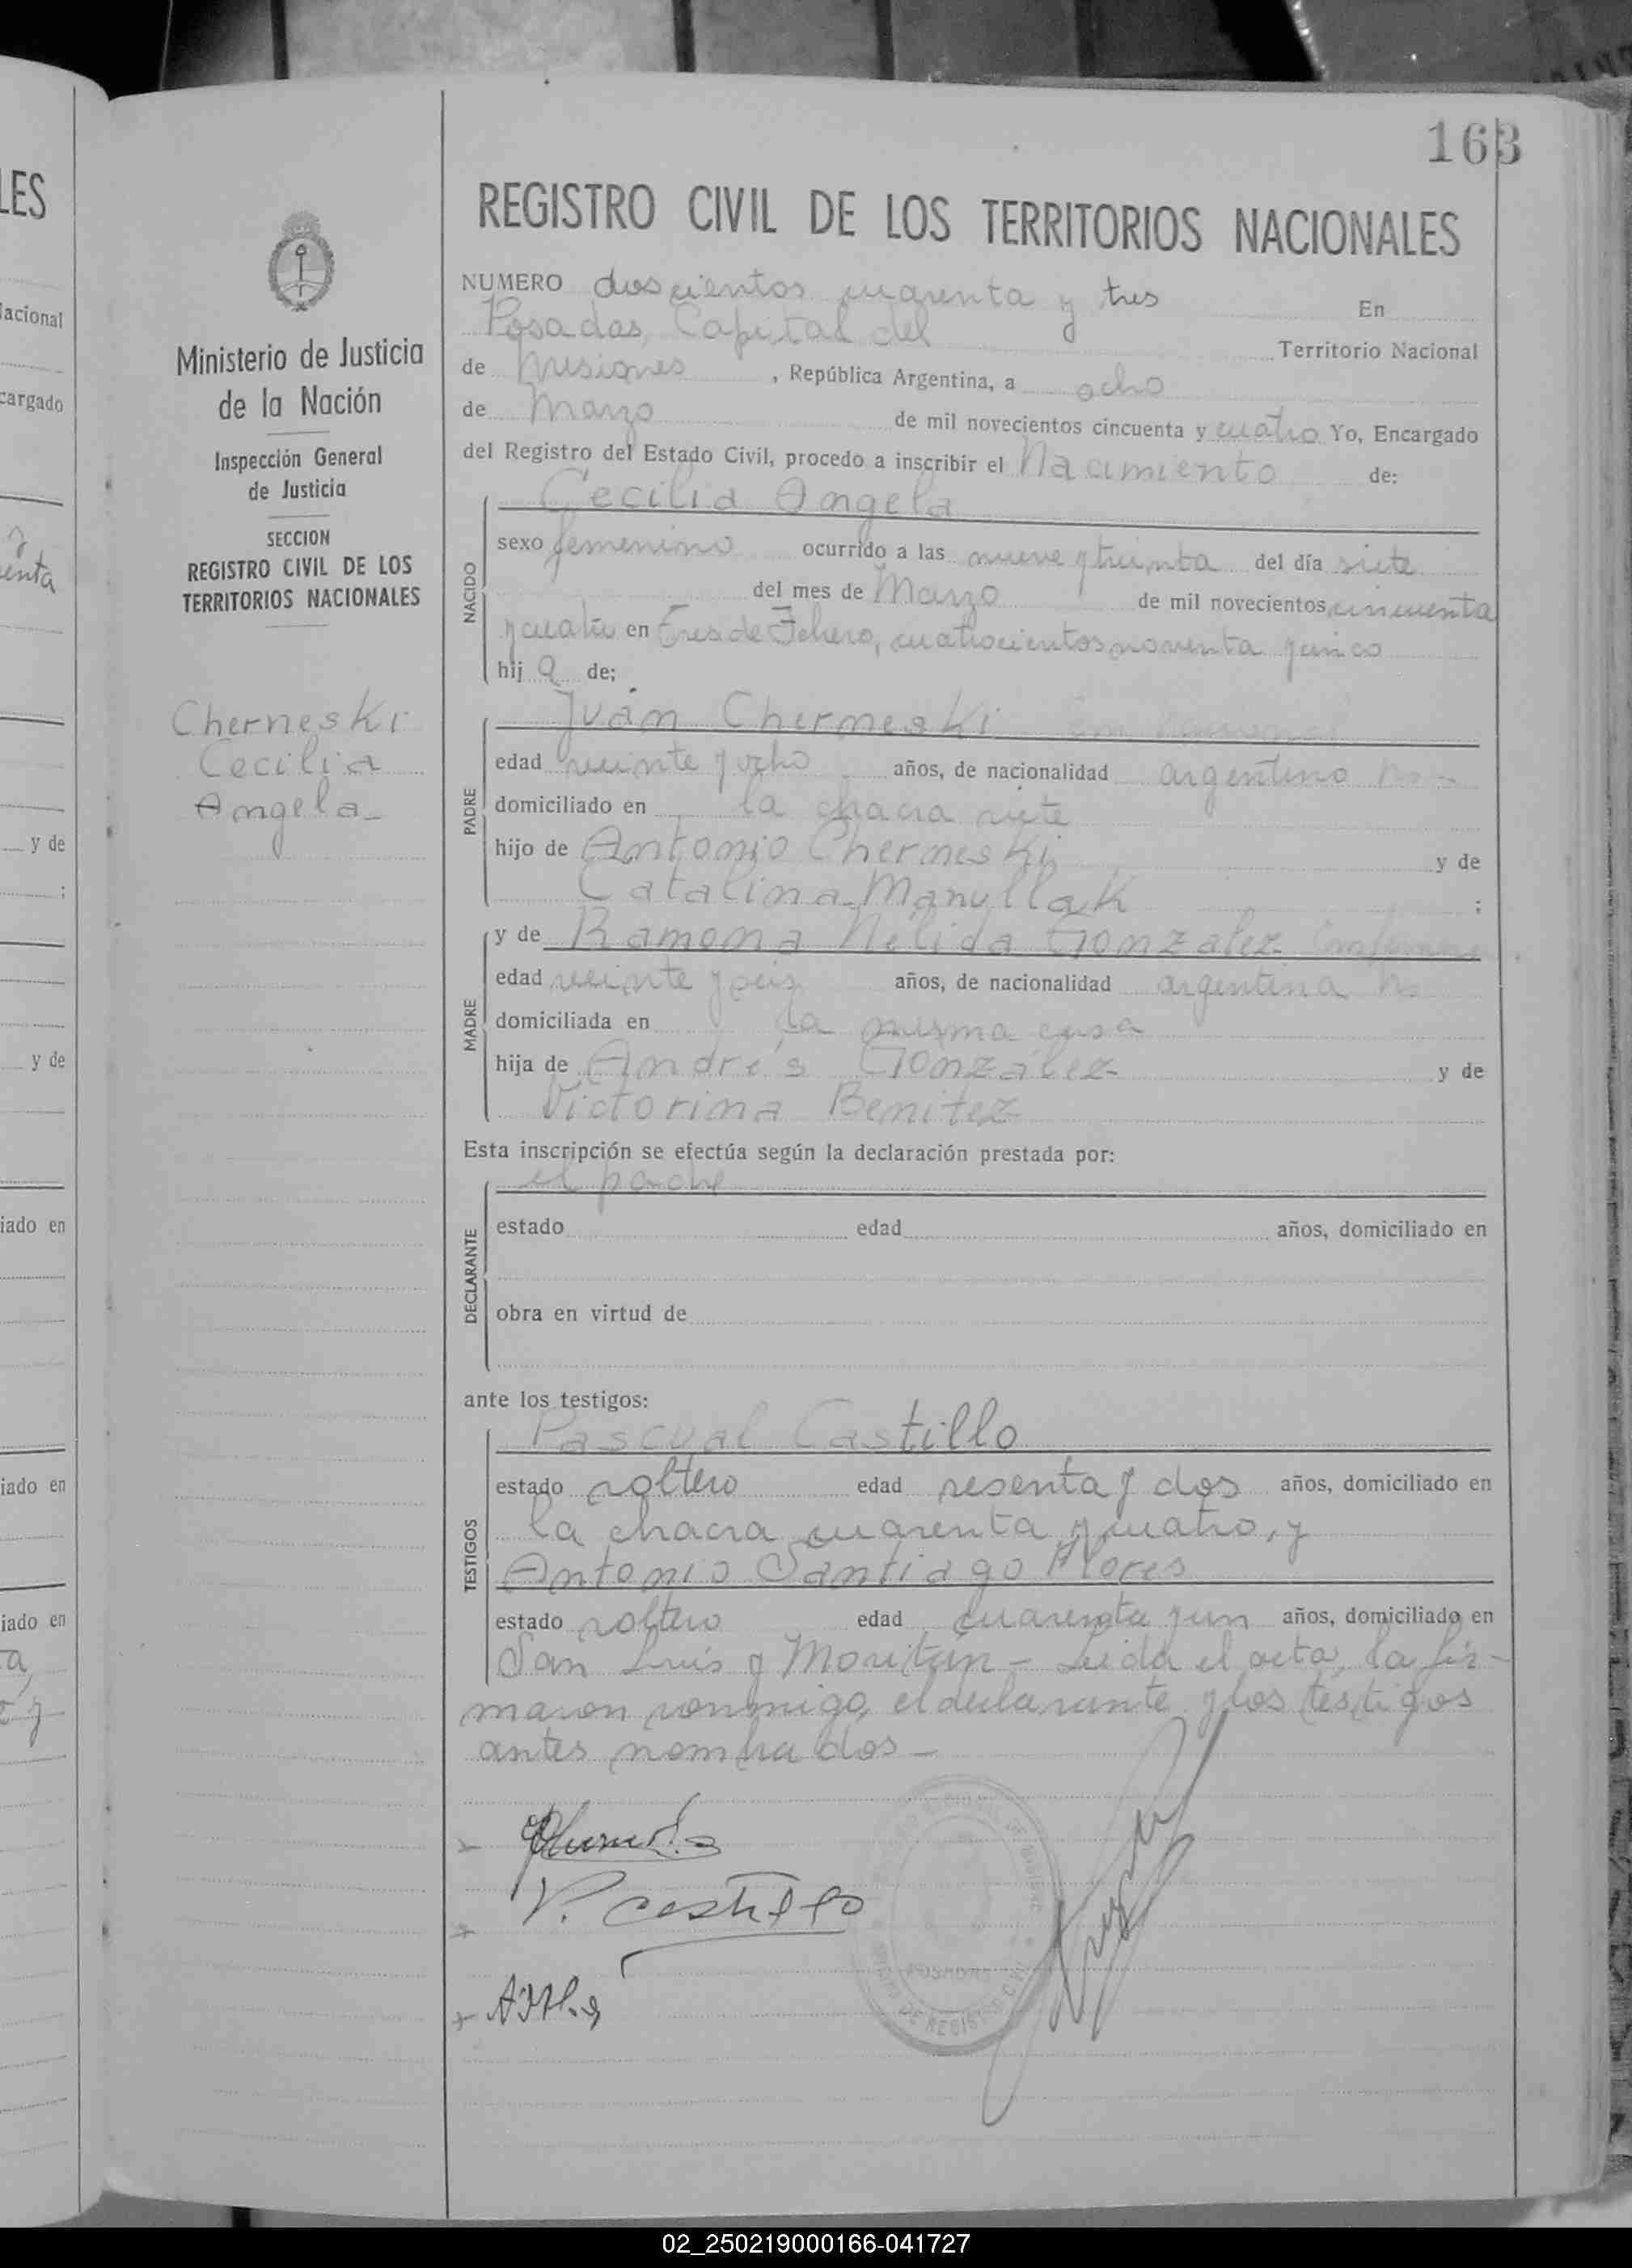 163
LES
REGISTRO CIVIL DE LOS TERRITORIOS NACIONALES
NUMERO doscientos cuarenta y tres En
Posadas, Capital del Territorio Nacional
de Misiones, República Argentina, a ocho
de Marzo de mil novecientos cincuenta y cuatro Yo, Encargado
del Registro del Estado Civil, procedo a inscribir el Nacimiento de:
Ministerio de Justicia
de la Nación
Inspección General
de Justicia
SECCION
REGISTRO CIVIL DE LOS
TERRITORIOS NACIONALES
Cherneski
Cecilia
Angela-
NACIDO
Cecilia Angela
sexo femenino ocurrido a las nueve y treinta del día siete
del mes de Marzo de mil novecientos cincuenta
y cuatro en Tres de Febrero, cuatrocientos noventa y cinco
hij a de;
PADRE
Juan Cherneski
edad veinte y ocho años, de nacionalidad argentino
domiciliado en la chacra siete
hijo de Antonio Cherneski y de
Catalina Manullak ;
MADRE
y de Ramona Nélida Gonzalez
edad veinte y seis años, de nacionalidad argentina
domiciliada en la misma casa
hija de Andrés González y de
Victorina Benitez
Esta inscripción se efectúa según la declaración prestada por:
DECLARANTE
el padre
estado edad años, domiciliado en
obra en virtud de
ante los testigos:
TESTIGOS
Pascual Castillo
estado soltero edad sesenta y dos años, domiciliado en
la chacra cuarenta y cuatro, y
Antonio Santiago Flores
estado soltero edad cuarenta y un años, domiciliado en
San Luis y Moritán - Leida el acta, la fir-
maron conmigo, el declarante y los testigos
antes nombrados -
P. Castillo
POSADAS
02_250219000166-041727